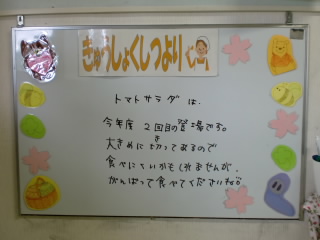 きゅうしょくしつより
トマトサラダは、
今年度 2回目の登場です。
大きめに切ってあるので
き
食べにくいかもしれませんが、
がんばって食べてくださいね。